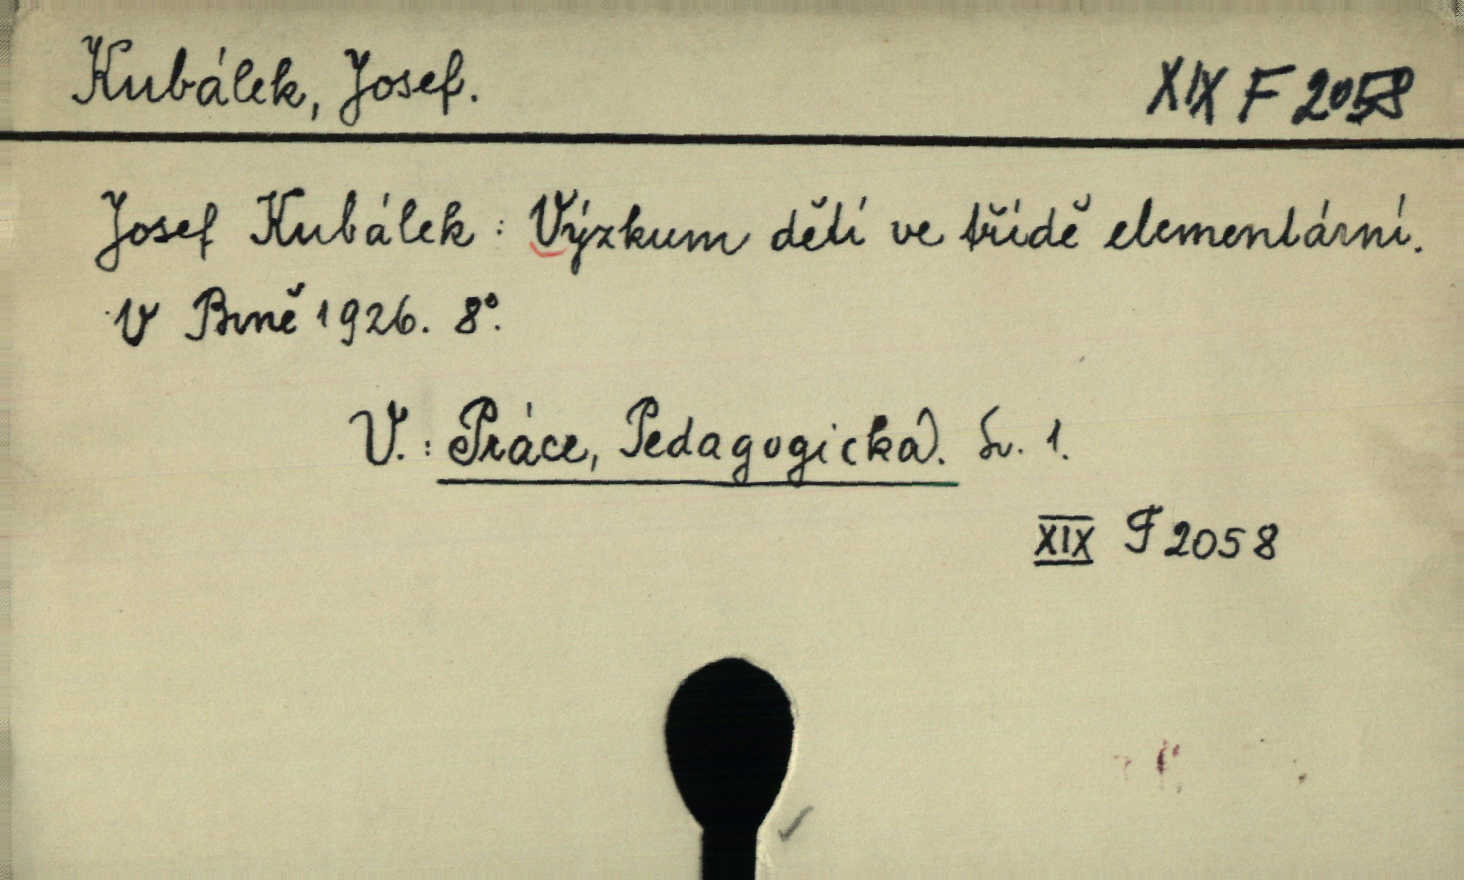 Kubálek, Josef.
XIX F 2058
Josef Kubálek: Výzkum dětí ve třídě elementární.
V Brně 1926. 8°.
V.: Práce, Pedagogická. Sv. 1.
XIX F 2058